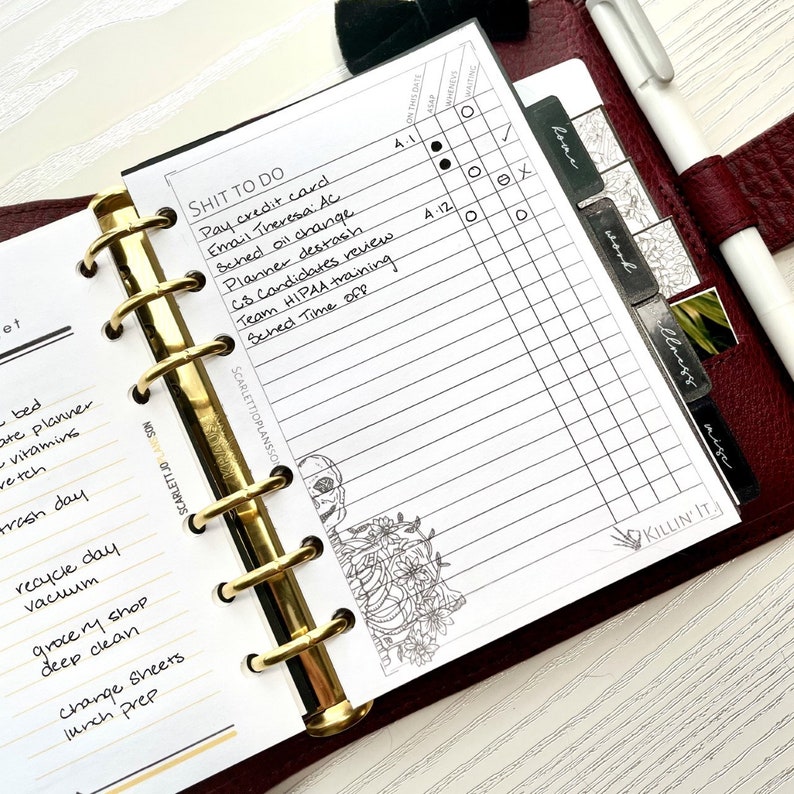 SHIT TO DO
ON THIS DATE
ASAP
WHENEVS
WAITING
Pay credit card 4.1
Email Theresa: AC
Sched oil change
Planner destash
CS Candidates review 4.12
Team HIPAA training
Sched Time off
SCARLETTJOPLANSSON
KILLIN' IT.
home
work
ellness
misc
SCARLETTJOPLANSSON
et
e bed
ate planner
e vitamins
retch
trash day
recycle day
vacuum
grocery shop
deep clean
change sheets
lunch prep